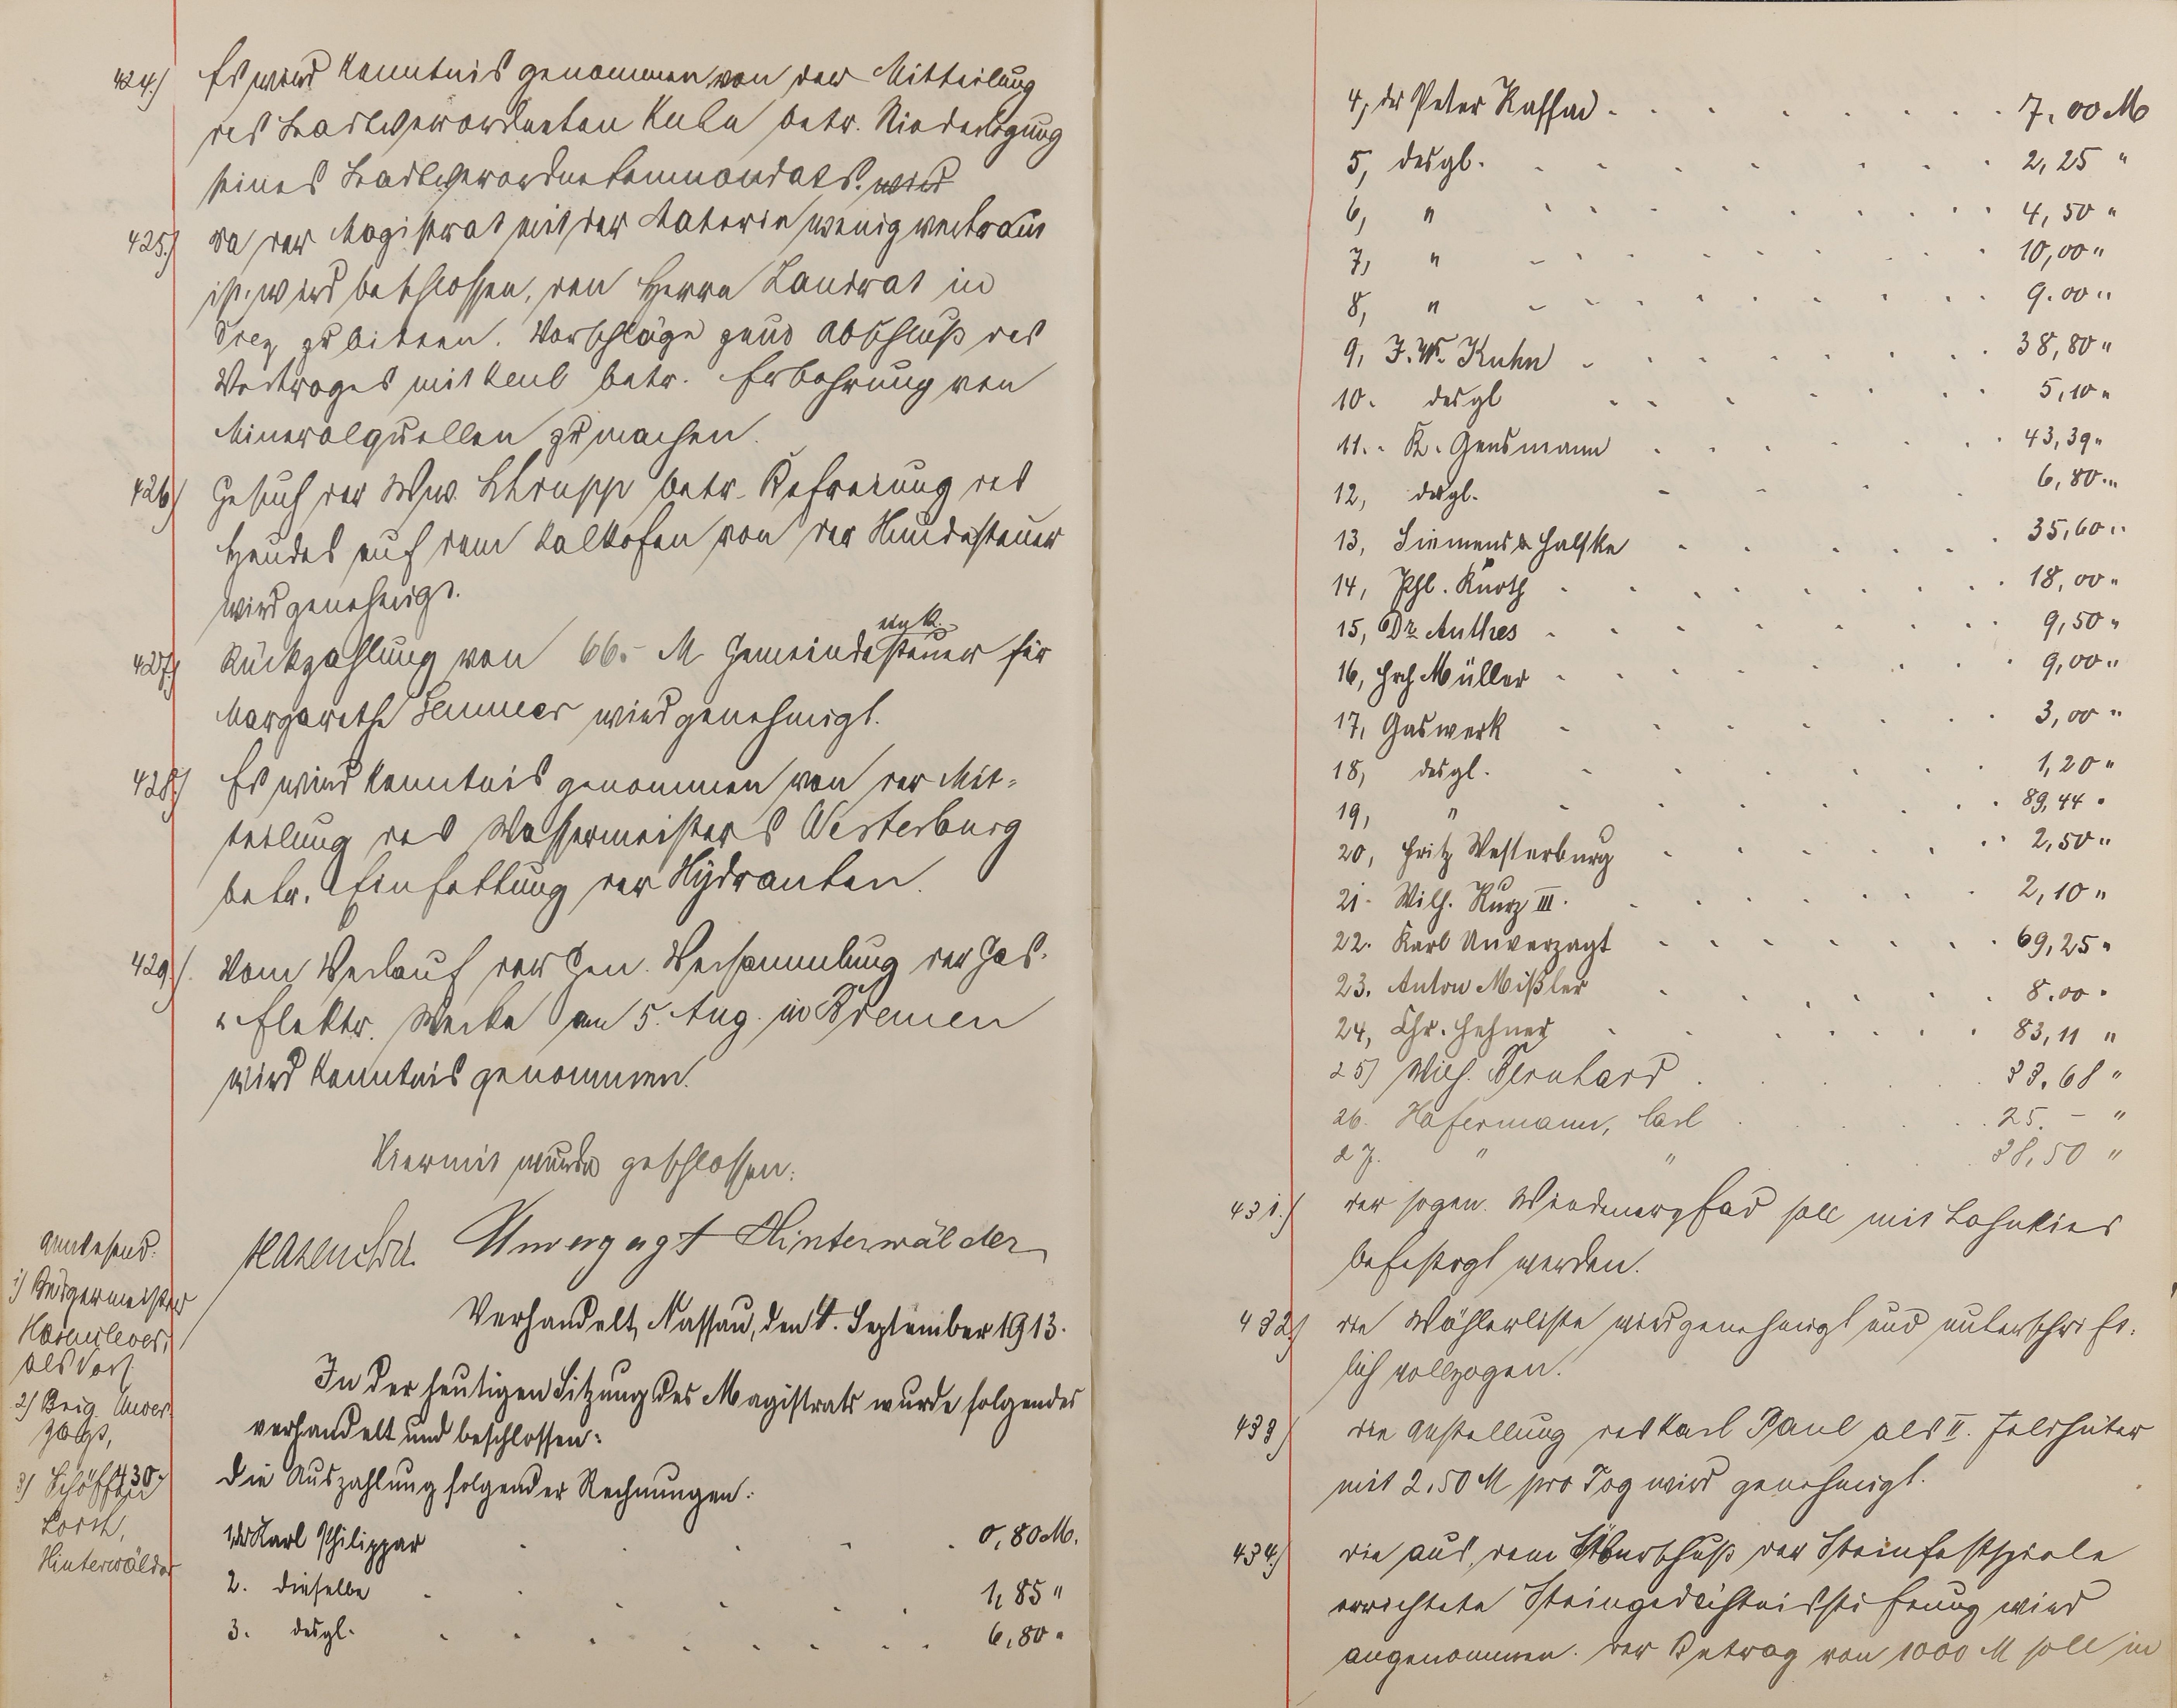 424.) Es wird Kenntnis genommen von der Mitteilung
des Stadtverordneten Kuhn betr. Niederlegung
seines Stadtverordnetenmandats. wird
425.) Da der Magistrat mit der Materie wenig vertraut
ist, wird beschlossen, den Herrn Landrat in
Diez zu bitten. Vorschläge zum Abschluß des
Vertrages mit Keul betr. Erbohrung von
Mineralquellen zu machen.
426.) Gesuch der Ww. Strupp betr. Befreiung des
Hundes auf dem Kalkofen von der Hundesteuer
wird genehmigt.
427.) Rückzahlung von 66.- M Gemeindeeink.steuer für
Margarethe wird genehmigt.
428.) Es wird Kenntnis genommen von der Mit-
teilung des Wassermeisters Westerburg
betr. Einfettung der Hydranten.
429.) Vom Verlauf der Gen. Versammlung der Gas-
u. Elektr. Werke am 5. Aug. in Bremen
wird Kenntnis genommen.
Hiermit wurde geschlossen.
Hasenclever. Unverzagt Hinterwälder
Anwesend:
1) Bürgermeister
Hasenclever,
als Vors.
2) Beig. Unver-
zagt,
3) Schöffen
Lorch,
Hinterwälder
Verhandelt, Nassau, den 4. September 1913.
In der heutigen Sitzung des Magistrats wurde folgendes
verhandelt und beschlossen:
430. Die Auszahlung folgender Rechnungen:
1, der Karl Philippar . . . . . 0,80 M.
2. dieselbe . . . . . . 1,85 "
3. desgl. . . . . . . . . 6,80 "
4, der Peter . . . . . . . 7,00 M
5, desgl. . . . . . . . 2,25 "
6, " . . . . . . . . 4,50 "
7, " . . . . . . . 10,00 "
8, " . . . . . . . . 9.00 "
9, J. W. Kuhn . . . . . . . 38,80 "
10. desgl . . . . . . . 5,10 "
11. K. Gensmann . . . . . . 43,39 "
12, desgl. . . . . 6,80 "
13, Siemens & Halske . . . . . . 35,60 "
14, Phl. Knoth . . . . . . . . 18,00 "
15, Dr. Anthes . . . . . . . . 9,50 "
16, Hch. Müller . . . . . . . 9,00 "
17, Gaswerk . . . . . . 3,00 "
18, desgl. . . . . . . 1,20 "
19, " . . . . . . 89,44 "
20, Fritz Westerburg . . . . . . 2,50 "
21. Wilh. Kurz III. . . . . . . 2,10 "
22. Karl Unverzagt . . . . . . . 69,25 "
23. Anton Mißler . . . . . . 8.00 "
24, Chr. Hehner . . . . . . . 83,11 "
25) Wilh. Bernhard . . . . 33,68 "
26. Hafermann, Carl . . . . . 25.- "
27. " " . . 38,50 "
431.) Der sogen. soll mit Lahnkies
befestigt werden.
432.) Die Wählerliste wird genehmigt und unterschrift-
lich vollzogen.
433) Die Anstellung des Karl Paul als II. Feldhüter
mit 2,50 M pro Tag wird genehmigt.
434.) Die aus dem Überschuß der Steinfestspiele
errichtete Steingedächtnisstiftung wird
angenommen. Der Betrag von 1000 M soll in